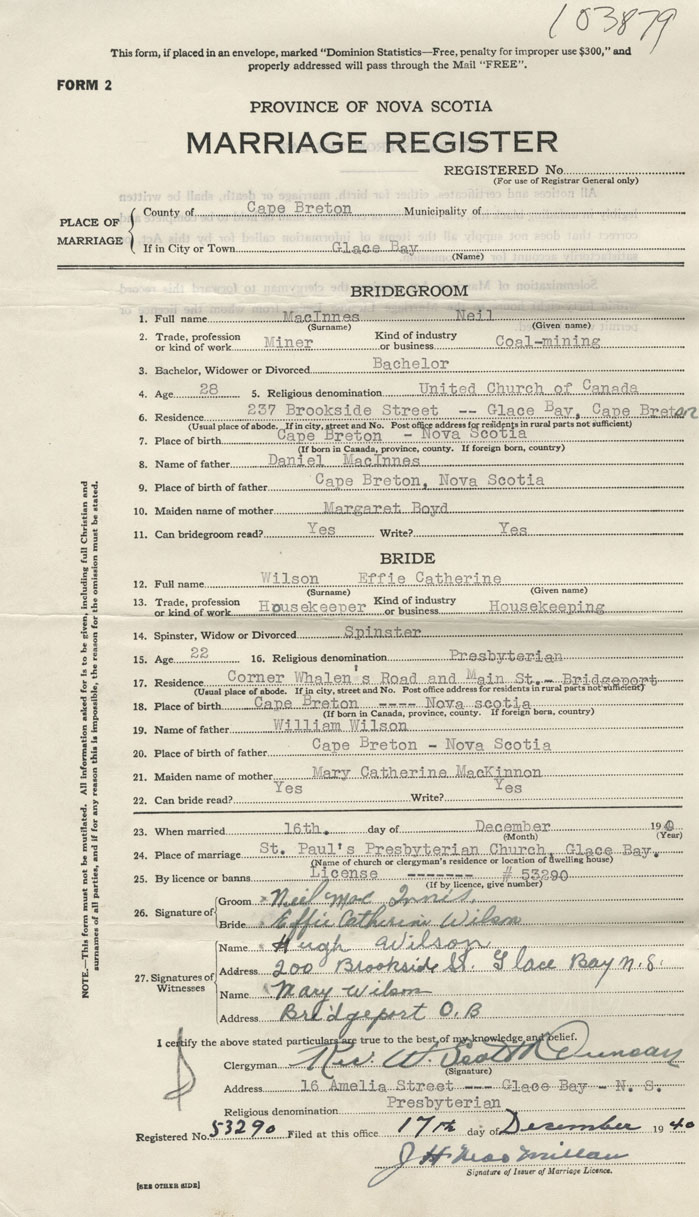 103879
This form, if placed in an envelope, marked "Dominion Statistics—Free, penalty for improper use $300," and
properly addressed will pass through the Mail "FREE".
FORM 2
PROVINCE OF NOVA SCOTIA
MARRIAGE REGISTER
REGISTERED No.
(For use of Registrar General only)
PLACE OF MARRIAGE
County of Cape Breton Municipality of
If in City or Town Glace Bay
(Name)
BRIDEGROOM
1. Full name MacInnes Neil
(Surname) (Given name)
2. Trade, profession or kind of work Miner Kind of industry or business Coal-mining
3. Bachelor, Widower or Divorced Bachelor
4. Age 28 5. Religious denomination United Church of Canada
6. Residence 237 Brookside Street -- Glace Bay, Cape Breton
(Usual place of abode. If in city, street and No. Post office address for residents in rural parts not sufficient)
7. Place of birth Cape Breton - Nova Scotia
(If born in Canada, province, county. If foreign born, country)
8. Name of father Daniel MacInnes
9. Place of birth of father Cape Breton, Nova Scotia
10. Maiden name of mother Margaret Boyd
11. Can bridegroom read? Yes Write? Yes
BRIDE
12. Full name Wilson Effie Catherine
(Surname) (Given name)
13. Trade, profession or kind of work Housekeeper Kind of industry or business Housekeeping
14. Spinster, Widow or Divorced Spinster
15. Age 22 16. Religious denomination Presbyterian
17. Residence Corner Whalen's Road and Main St.- Bridgeport
(Usual place of abode. If in city, street and No. Post office address for residents in rural parts not sufficient)
18. Place of birth Cape Breton ---- Nova scotia
(If born in Canada, province, county. If foreign born, country)
19. Name of father William Wilson
20. Place of birth of father Cape Breton - Nova Scotia
21. Maiden name of mother Mary Catherine MacKinnon
22. Can bride read? Yes Write? Yes
23. When married 16th. day of December 1940
(Month) (Year)
24. Place of marriage St. Paul's Presbyterian Church, Glace Bay.
(Name of church or clergyman's residence or location of dwelling house)
25. By licence or banns License ------- # 53290
(If by licence, give number)
26. Signature of
Groom Neil Mac Innis.
Bride Effie Catherine Wilson
27. Signatures of Witnesses
Name Hugh Wilson
Address 200 Brookside St. Glace Bay N.S.
Name Mary Wilson
Address Bridgeport C.B
I certify the above stated particulars are true to the best of my knowledge and belief.
Clergyman Rev. W. Scott McDuncan
(Signature)
Address 16 Amelia Street --- Glace Bay - N. S.
Religious denomination Presbyterian
Registered No. 53290 Filed at this office 17th day of December 1940
J H MacMillan
Signature of Issuer of Marriage Licence.
[SEE OTHER SIDE]
NOTE.—This form must not be mutilated. All information asked for is to be given, including full Christian and
surnames of all parties, and if for any reason this is impossible, the reason for the omission must be stated.